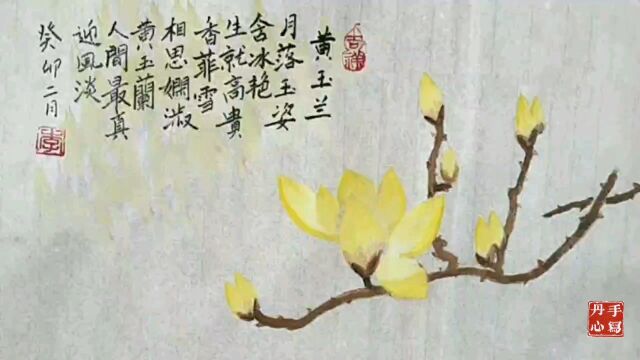 黄玉兰
吉祥
月落玉姿
含冰艳
生就高貴
香菲雪
相思嫻淑
黄玉蘭
人間最真
迎風淡
癸卯二月
手寫
丹心